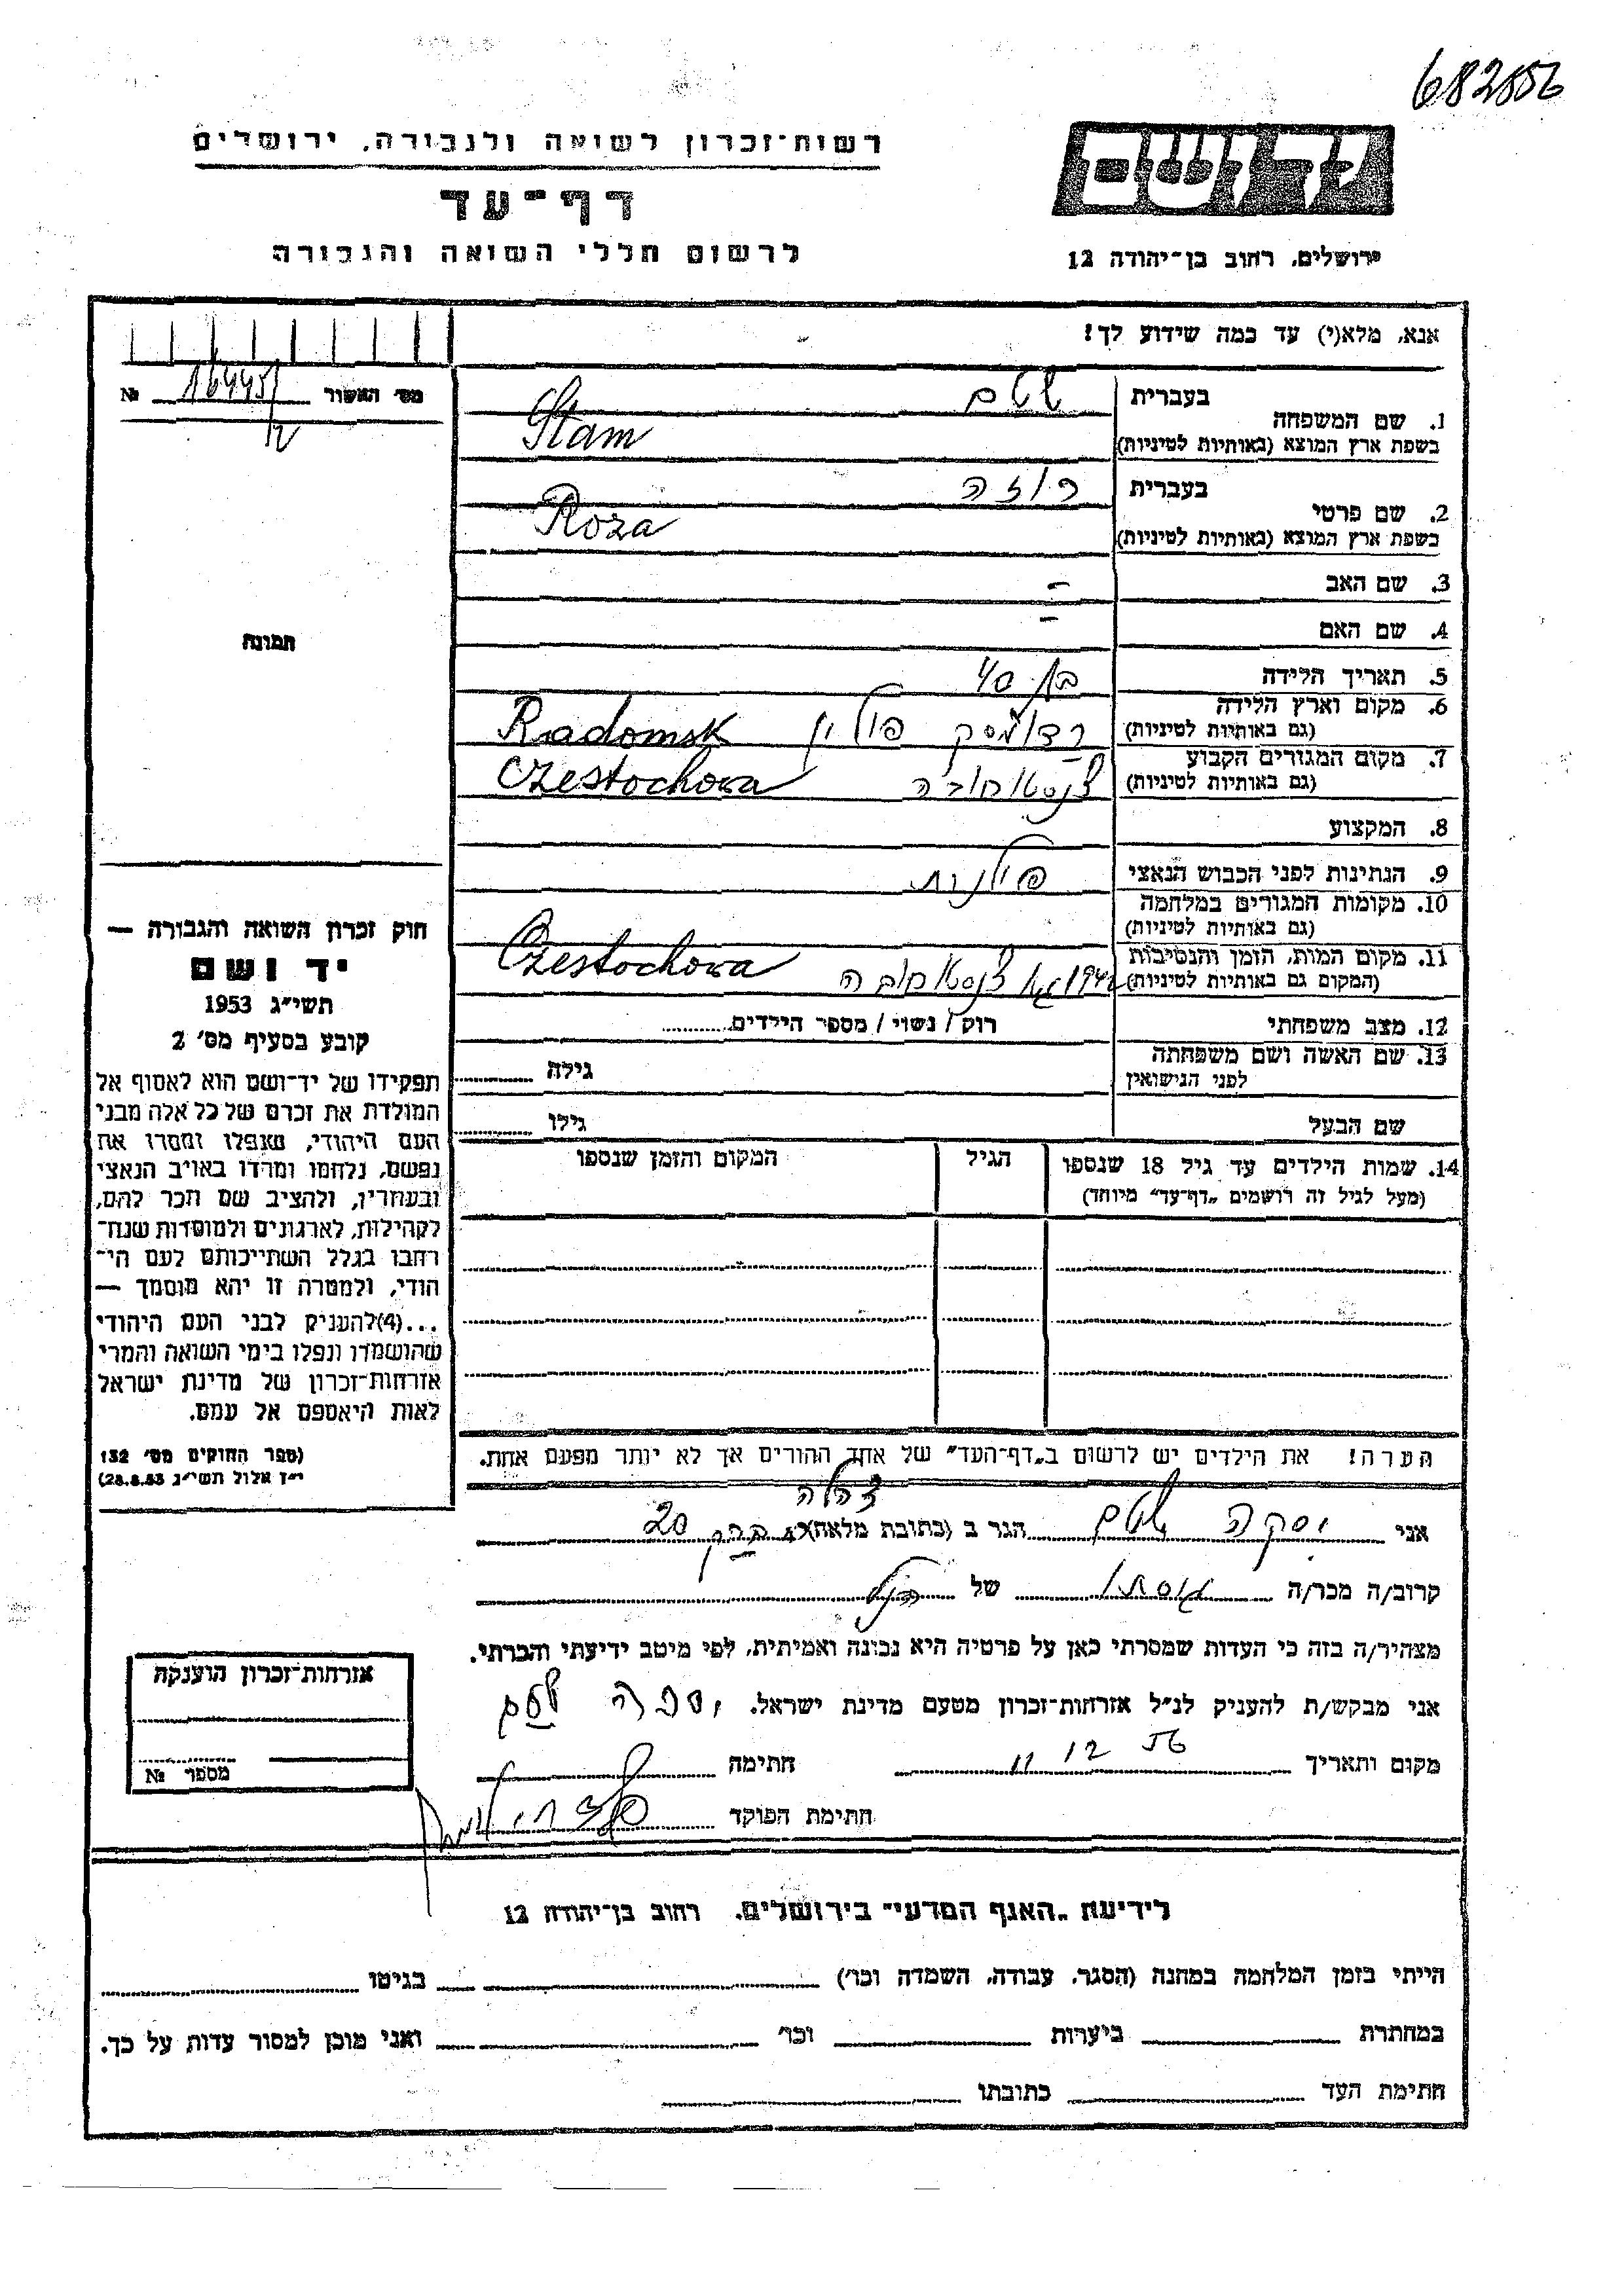 682556
רשות־זכרון לשואה ולגבורה, ירושלים
דף־עד
לרשום חללי השואה והגבורה
יד ושם
ירושלים, רחוב בן־יהודה 12
אנא, מלא(י) עד כמה שידוע לך!
מס' האשור № 164451
12
תמונה
חוק זכרון השואה והגבורה —
יד ושם
תשי״ג 1953
קובע בסעיף מס' 2
תפקידו של יד־ושם הוא לאסוף אל
המולדת את זכרם של כל אלה מבני
העם היהודי, שנפלו ומסרו את
נפשם, נלחמו ומרדו באויב הנאצי
ובעוזריו, ולהציב שם וזכר להם,
לקהילות, לארגונים ולמוסדות שנח־
רבו בגלל השתייכותם לעם הי־
הודי, ולמטרה זו יהא מוסמך —
...(4)להעניק לבני העם היהודי
שהושמדו ונפלו בימי השואה והמרי
אזרחות־זכרון של מדינת ישראל
לאות היאספם אל עמם.
(ספר החוקים מס' 132
י״ז אלול תשי״ג 28.8.53)
1. שם המשפחה בעברית שטם
בשפת ארץ המוצא (באותיות לטיניות) Stam
2. שם פרטי בעברית רוזה
בשפת ארץ המוצא (באותיות לטיניות) Roza
3. שם האב –
4. שם האם –
5. תאריך הלידה בת 40
6. מקום וארץ הלידה
(גם באותיות לטיניות) רדומסק פולין Radomsk
7. מקום המגורים הקבוע
(גם באותיות לטיניות) צ'נסטוחובה Czestochowa
8. המקצוע
9. הנתינות לפני הכבוש הנאצי פולנית
10. מקומות המגורים במלחמה
(גם באותיות לטיניות)
11. מקום המות, הזמן והנסיבות
(המקום גם באותיות לטיניות) 1942 צ'נסטוחובה Czestochowa
12. מצב משפחתי רוק / נשוי / מספר הילדים
13. שם האשה ושם משפחתה
לפני הנישואין גילה
שם הבעל גילו
14. שמות הילדים עד גיל 18 שנספו הגיל המקום והזמן שנספו
(מעל לגיל זה רושמים „דף־עד״ מיוחד)
הערה! את הילדים יש לרשום ב„דף־העד״ של אחד ההורים אך לא יותר מפעם אחת.
צהלה
אני יסקה שטם הגר ב (כתובת מלאה) ברק 20
קרוב/ה מכר/ה גיסתו של הנ״ל
מצהיר/ה בזה כי העדות שמסרתי כאן על פרטיה היא נכונה ואמיתית, לפי מיטב ידיעתי והכרתי.
אני מבקש/ת להעניק לנ״ל אזרחות־זכרון מטעם מדינת ישראל. יסקה שטם
מקום ותאריך 11 12 חתימה
חתימת הפוקד
אזרחות־זכרון הוענקה
מספר №
לידיעת „האגף המדעי״ בירושלים, רחוב בן־יהודה 12
הייתי בזמן המלחמה במחנה (הסגר, עבודה, השמדה וכו') בגיטו
במחתרת ביערות וכו' ואני מוכן למסור עדות על כך.
חתימת העד כתובתו